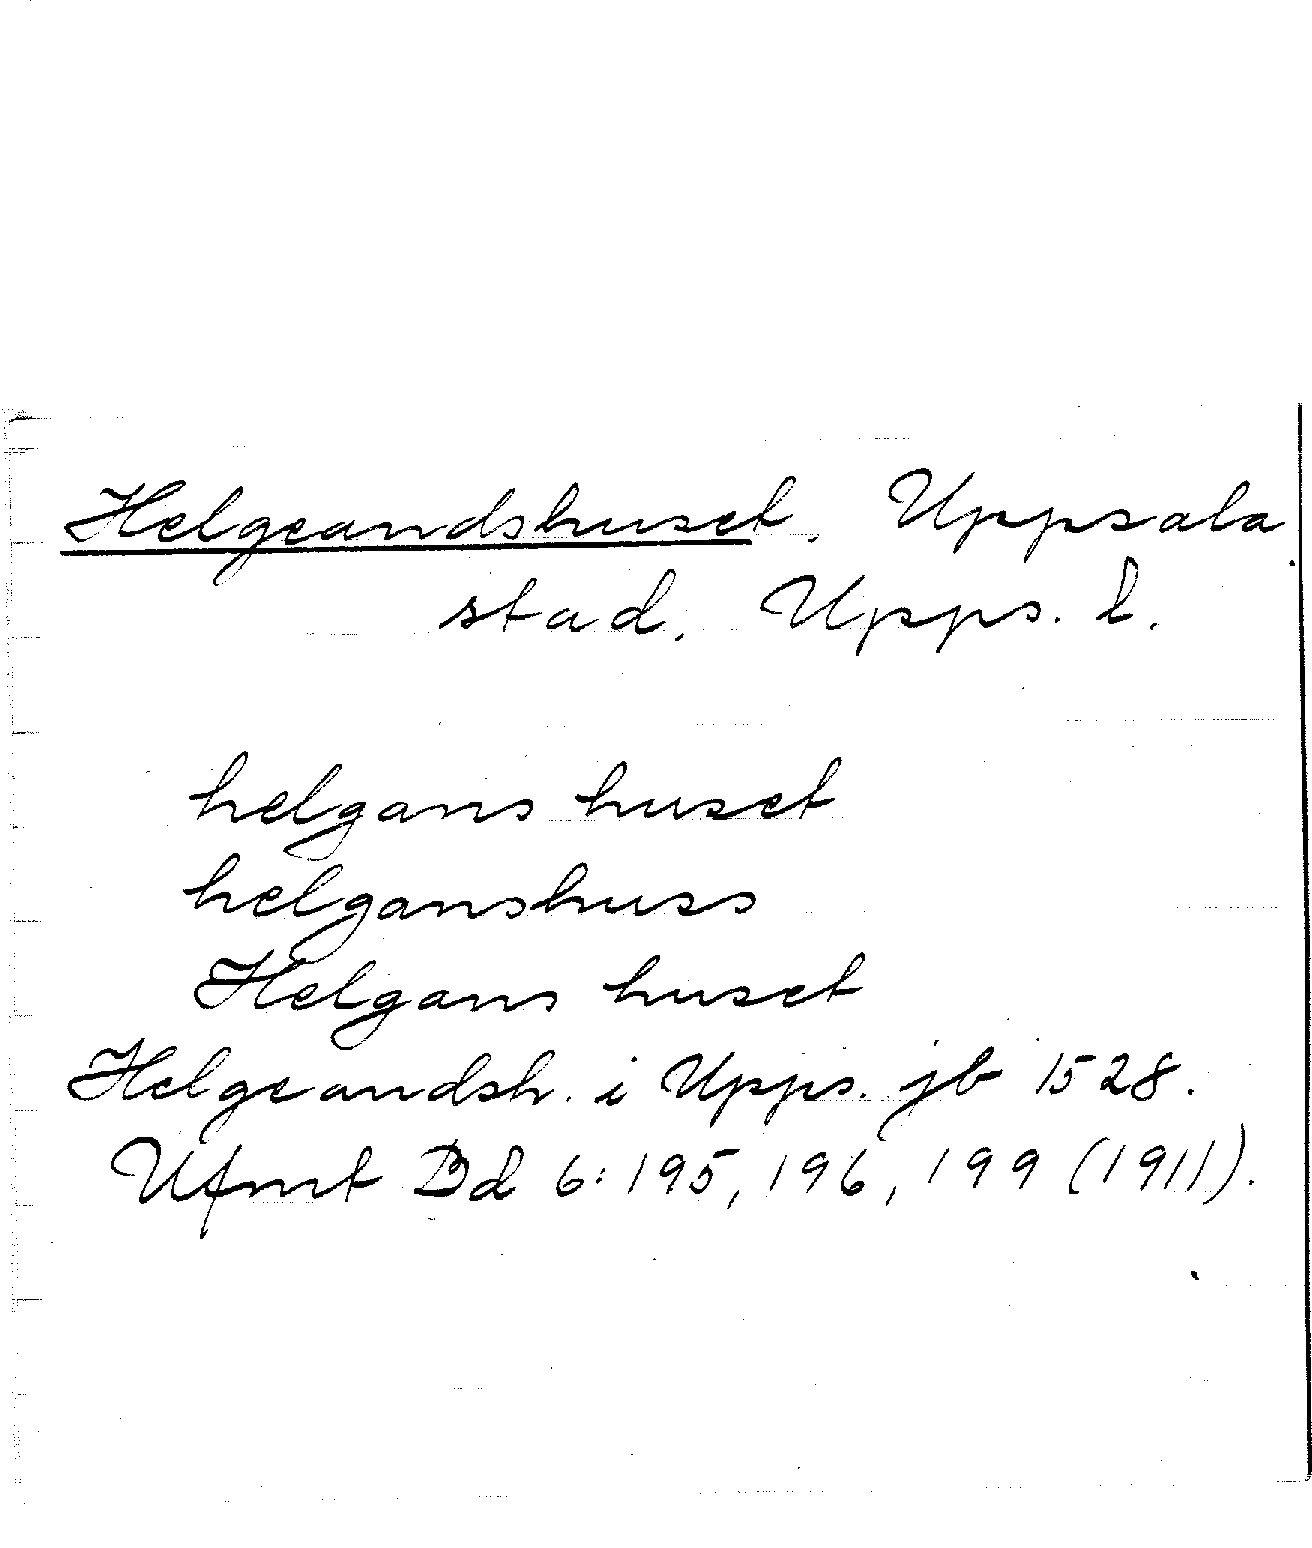 Helgeandshuset. Uppsala
stad. Upps. l.
helgans huset
helganshuss
Helgans huset
Helgeandsh. i Upps. jb 1528.
Ufmt Bd 6: 195, 196, 199 (1911).